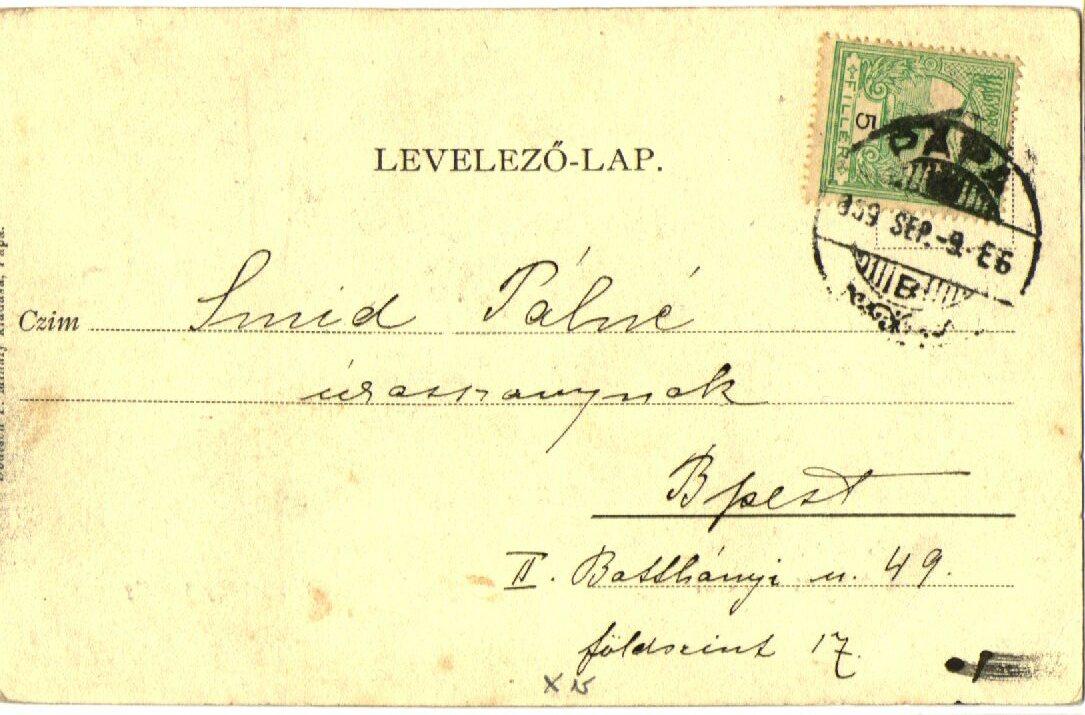 LEVELEZŐ-LAP.
FILLÉR
5
PÁPA
SEP.-9. E6
B
Czim Smid Pálné
úrasszonynak
Bpest
II. Batthányi u. 49.
földszint 17.
Mihály kiadása, Pápa.